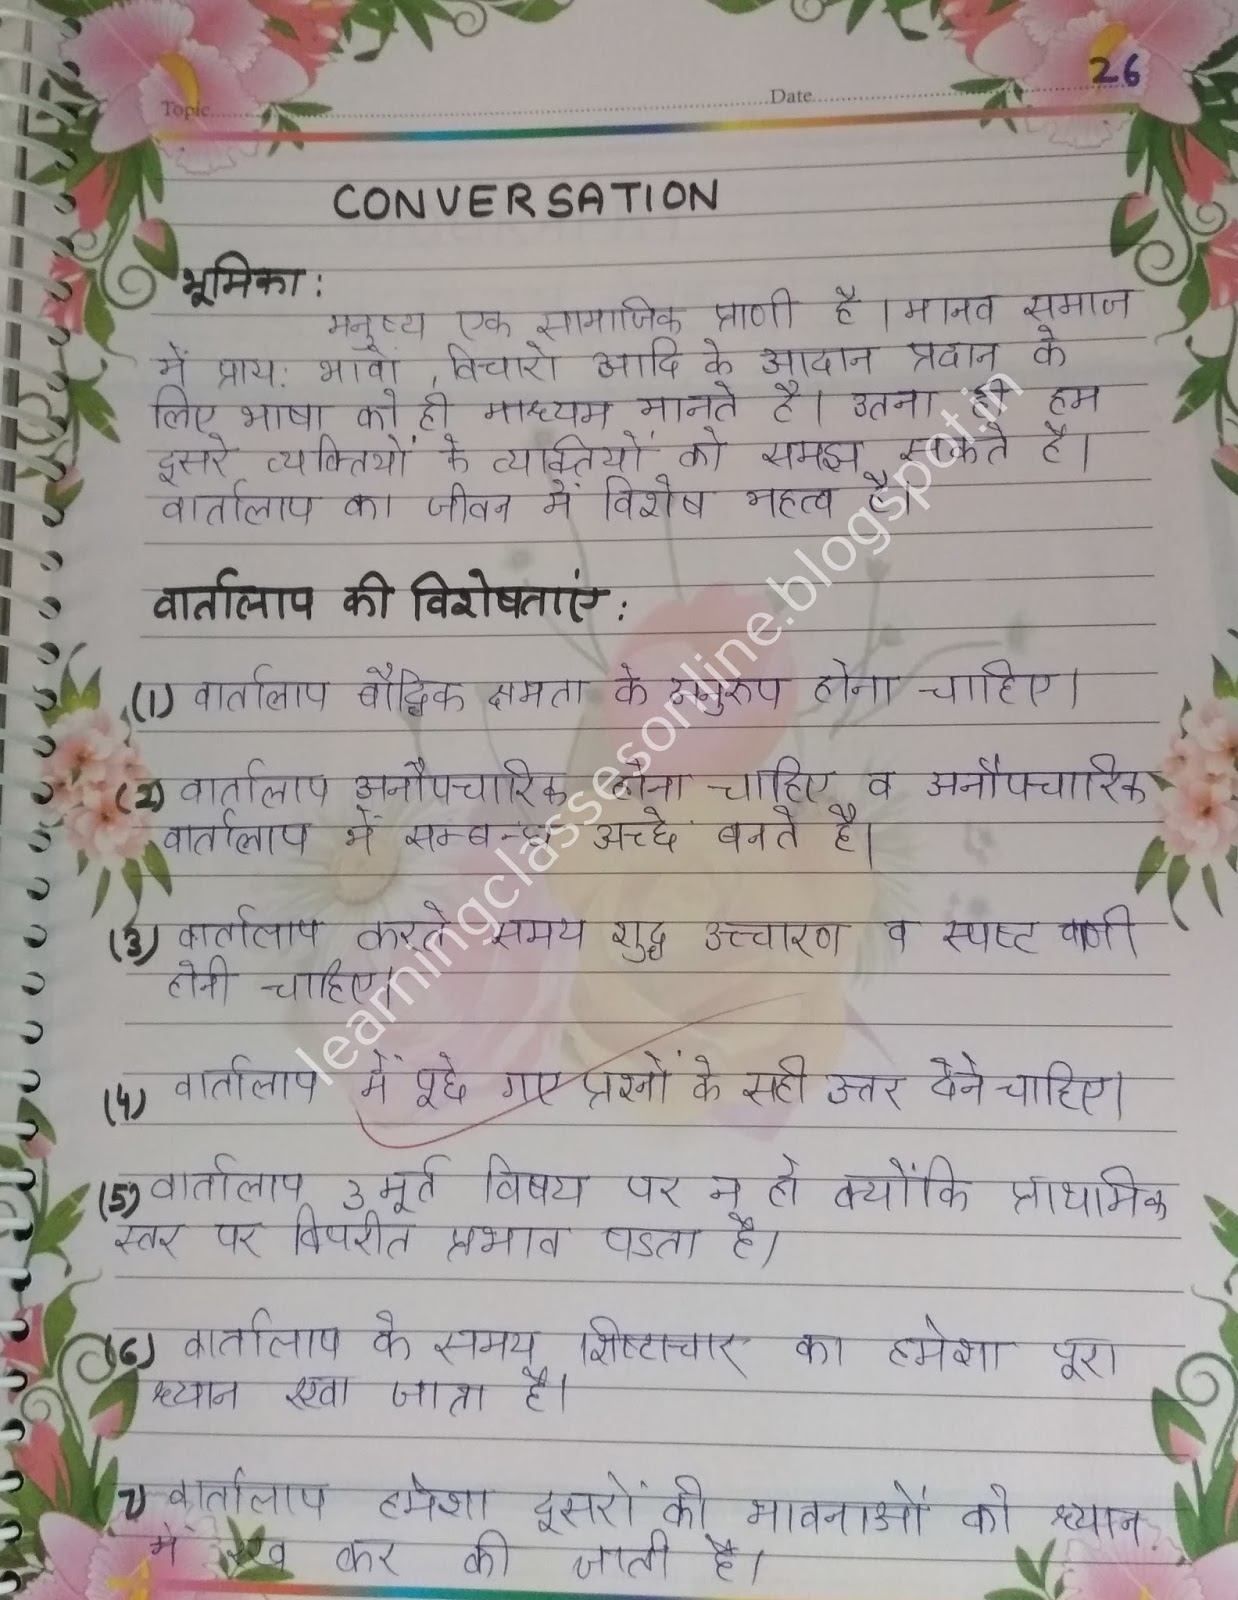 26
Topic
Date
CONVERSATION
भूमिका :
मनुष्य एक सामाजिक प्राणी है । मानव समाज
में प्राय: भावों , विचारो आदि के आदान प्रदान के
लिए भाषा को ही माध्यम मानते है। उतना ही हम
दूसरे व्यक्तियों के व्यक्तियों को समझ सकते है।
वार्तालाप का जीवन में विशेष महत्व है।
वार्तालाप की विशेषताएं :
(1) वार्तालाप बौद्धिक क्षमता के अनुरुप होना चाहिए।
(2) वार्तालाप अनौपचारिक होना चाहिए व अनौपचारिक
वार्तालाप में सम्बन्ध अच्छे बनते है।
(3) वार्तालाप करते समय शुद्ध उच्चारण व स्पष्ट वाणी
होनी चाहिए।
(4) वार्तालाप में पूछे गए प्रश्नों के सही उत्तर देने चाहिए।
(5) वार्तालाप अमूर्त विषय पर न हो क्योंकि प्राथमिक
स्तर पर विपरीत प्रभाव पडता है।
(6) वार्तालाप के समय शिष्टाचार का हमेशा पूरा
ध्यान रखा जाता है।
7) वार्तालाप हमेशा दूसरों की भावनाओं को ध्यान
में रख कर की जाती है।
learningclassesonline.blogspot.in